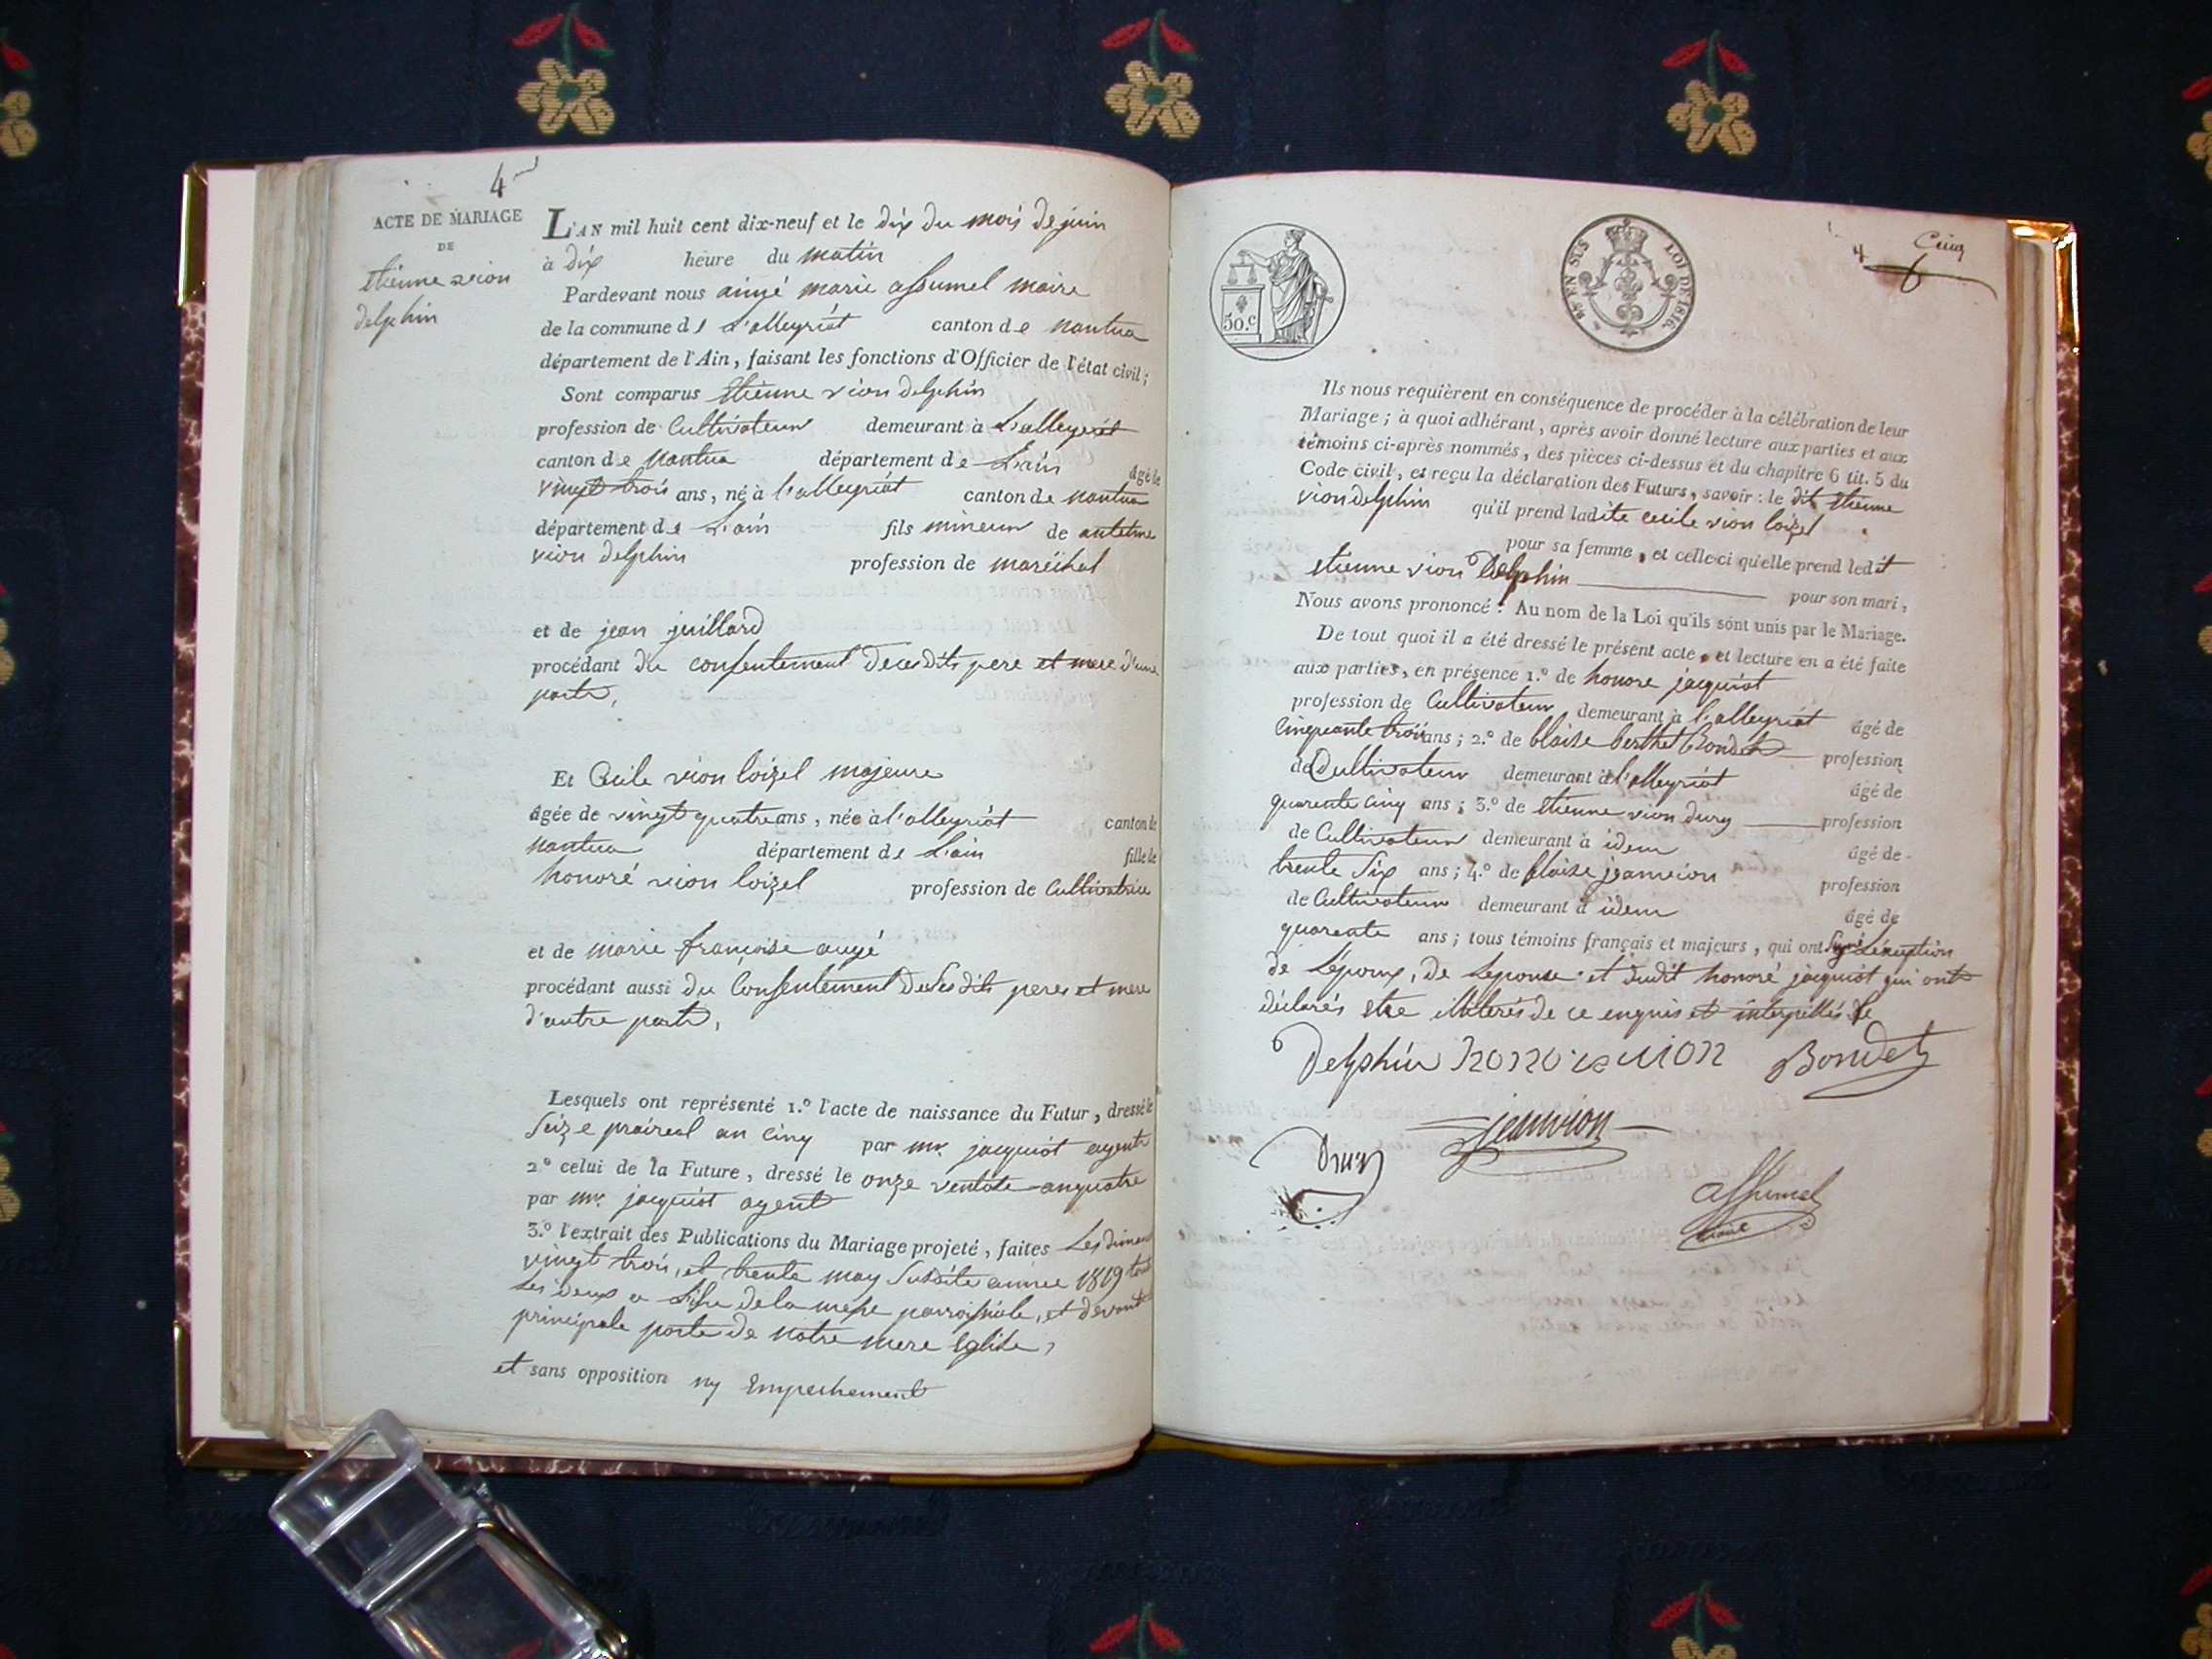 4
ACTE DE MARIAGE
DE
Etienne vion
delphin
L'AN mil huit cent dix-neuf et le dix du mois de juin
à dix heure du matin
Pardevant nous aimé marie assumel maire
de la commune de L'alleyriat canton de nantua
département de l'Ain, faisant les fonctions d'Officier de l'état civil;
Sont comparus Etienne vion delphin
profession de Cultivateur demeurant à L'alleyriat
canton de Nantua département de L'ain âgé de
vingt trois ans, né à l'alleyriat canton de nantua
département de L'ain fils mineur de antelme
vion delphin profession de maréchal
et de jean juillard
procédant du consentement de cesdits pere et mere d'une
parte,
Et Cécile vion loizel majeure
âgée de vingt quatre ans, née à l'alleyriat canton de
nantua département de L'ain fille de
honoré vion loizel profession de Cultivatrice
et de marie francoise augé
procédant aussi du Consentement de sesdits peres et mere
d'autre parte,
Lesquels ont représenté 1.º l'acte de naissance du Futur, dressé le
Seize praireal an cinq par mr. jacquiot agent
2.º celui de la Future, dressé le onze ventose an quatre
par mr. jacquiot agent
3.º l'extrait des Publications du Mariage projeté, faites Les diman
vingt trois, et trente may Susdite annee 1819 tout
Les deux a L'issue de la messe parroissiale, et devant
principale porte de notre mere Eglise,
et sans opposition ny Empechement
50.c
EN SUS LOI DE 1816.
4 Cinq
6
Ils nous requièrent en conséquence de procéder à la célébration de leur
Mariage; à quoi adhérant, après avoir donné lecture aux parties et aux
témoins ci-après nommés, des pièces ci-dessus et du chapitre 6 tit. 5 du
Code civil, et reçu la déclaration des Futurs, savoir: le dit Etienne
vion delphin qu'il prend ladite cecile vion loizel
pour sa femme, et celle-ci qu'elle prend ledit
Etienne vion Delphin pour son mari,
Nous avons prononcé: Au nom de la Loi qu'ils sont unis par le Mariage.
De tout quoi il a été dressé le présent acte, et lecture en a été faite
aux parties, en présence 1.º de honoré jacquiot
profession de Cultivateur demeurant à l'alleyriat âgé de
Cinquante trois ans; 2.º de blaise berthet Bondet profession
de Cultivateur demeurant à l'alleyriat âgé de
quarente cinq ans; 3.º de Etienne vion dury profession
de Cultivateur demeurant à idem âgé de
trente Six ans; 4.º de blaise jeanvion profession
de Cultivateur demeurant à idem âgé de
quarente ans; tous témoins français et majeurs, qui ont Signé à L'exception
de L'epoux, de Lepouse et dudit honoré jacquiot qui ont
déclarés etre illiterés de ce enquis et interpellés de
Delphin honore vion Bondet
jeanvion
Dury
assumel
maire